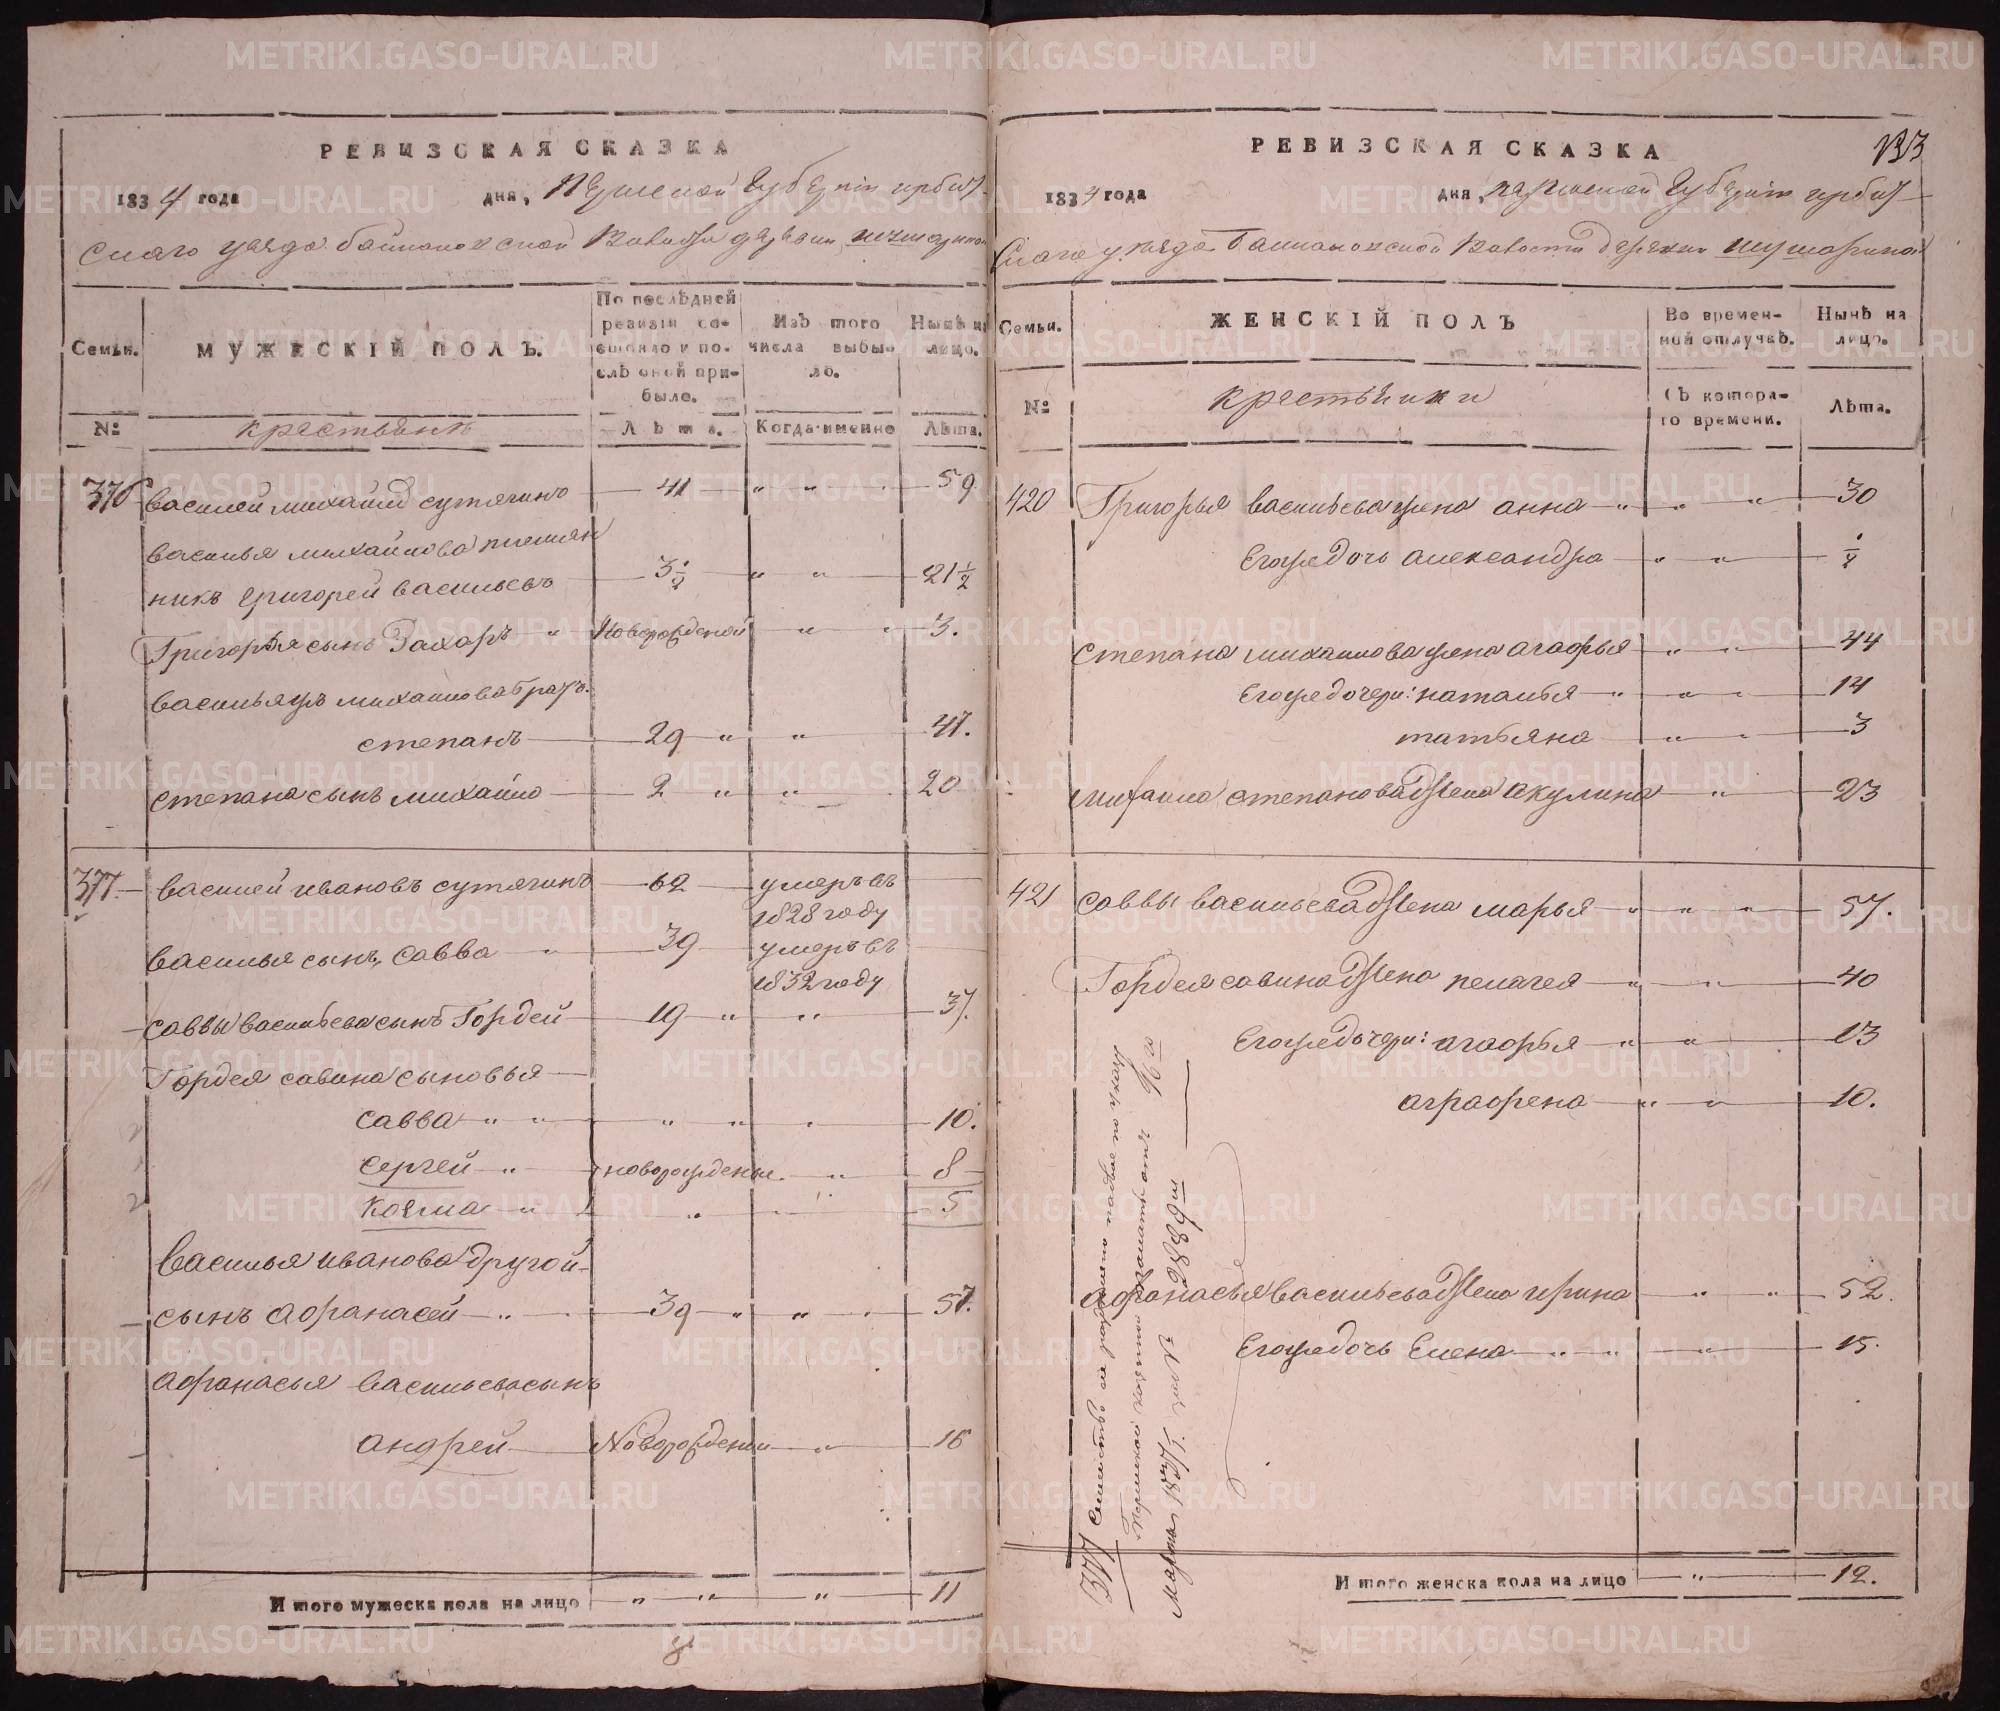 РЕВИЗСКАЯ СКАЗКА
1834 года дня, Пермской Губернiи ирбит-
скаго уезда баймановской Волости деревни
Семьи.
МУЖЕСКІЙ ПОЛЪ.
По послѣдней ревизіи состояло и послѣ оной прибыло.
Изъ того числа выбыло.
Нынѣ на лицо.
№
крестьяне
Лѣта.
Когда именно
Лѣта.
376 василей михайлов сутягинъ 41 " " 59
василья михайлова племян
никъ григорей васильевъ 3½ " " 21½
Григорья сынъ Захаръ " Новорожденой " " 3.
васильяжъ михаилова братъ.
степанъ 29 " " 47.
степана сынъ михайло 2 " " 20
377. василей ивановъ сутягинъ 62 умеръ въ
1828 году
василья сынъ савва " 39 умеръ въ
1832 году
саввы васильева сынъ Гордей 19 " " 37.
Гордея савина сыновья
савва " " " " " 10.
сергей " новорожденые " 8
козма " " 5
василья иванова другой
сынъ афанасей " 39 " " 57.
афанасья васильева сынъ
андрей Новорожденой " 16
Итого мужеска пола на лицо " " " 11
РЕВИЗСКАЯ СКАЗКА
133
1834 года дня, пермской Губернiи ирбит-
скаго уезда баймановской Волости деревни
Семьи.
ЖЕНСКІЙ ПОЛЪ
Во временной отлучкѣ.
Нынѣ на лицо.
№
крестьянки
Съ котораго времени.
Лѣта.
420 Григорья васильева жена анна " " " 30
Егожедочь александра " " ½
степана михаилова жена агафья " " 44
Егожедочери: наталья " " " 14
татьяна " " 3
михаила степанова жена акулина " 23
421 саввы васильева жена марья " " " 57.
Гордея савина жена пелагея " " 40
Егожедочери: агафья " " 13
аграфена " " 10.
афонасья васильева жена ирина " " 52.
Егожедочь Елена " " " 15.
Итого женска пола на лицо " 12.
377 семейство
Пермской казенной
Марта 1837 г. за № 2889м
METRIKI.GASO-URAL.RU